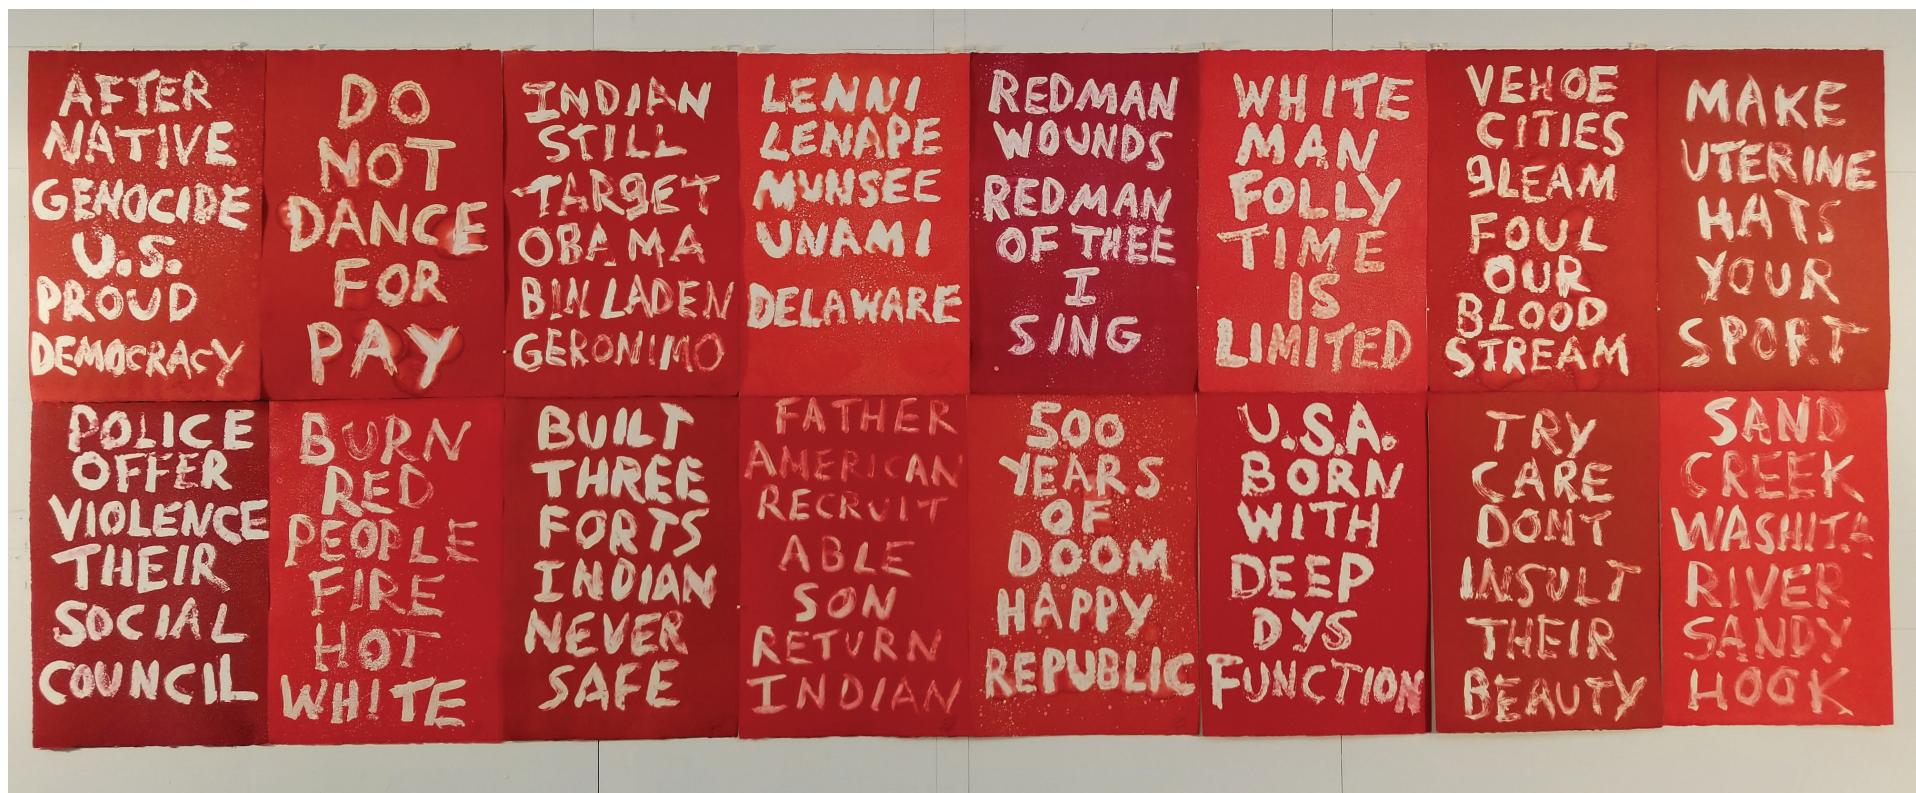 AFTER
NATIVE
GENOCIDE
U.S.
PROUD
DEMOCRACY
DO
NOT
DANCE
FOR
PAY
INDIAN
STILL
TARGET
OBAMA
BIN LADEN
GERONIMO
LENNI
LENAPE
MUNSEE
UNAMI
DELAWARE
REDMAN
WOUNDS
REDMAN
OF THEE
I
SING
WHITE
MAN
FOLLY
TIME
IS
LIMITED
VEHOE
CITIES
GLEAM
FOUL
OUR
BLOOD
STREAM
MAKE
UTERINE
HATS
YOUR
SPORT
POLICE
OFFER
VIOLENCE
THEIR
SOCIAL
COUNCIL
BURN
RED
PEOPLE
FIRE
HOT
WHITE
BUILT
THREE
FORTS
INDIAN
NEVER
SAFE
FATHER
AMERICAN
RECRUIT
ABLE
SON
RETURN
INDIAN
500
YEARS
OF
DOOM
HAPPY
REPUBLIC
U.S.A.
BORN
WITH
DEEP
DYS
FUNCTION
TRY
CARE
DONT
INSULT
THEIR
BEAUTY
SAND
CREEK
WASHITA
RIVER
SANDY
HOOK